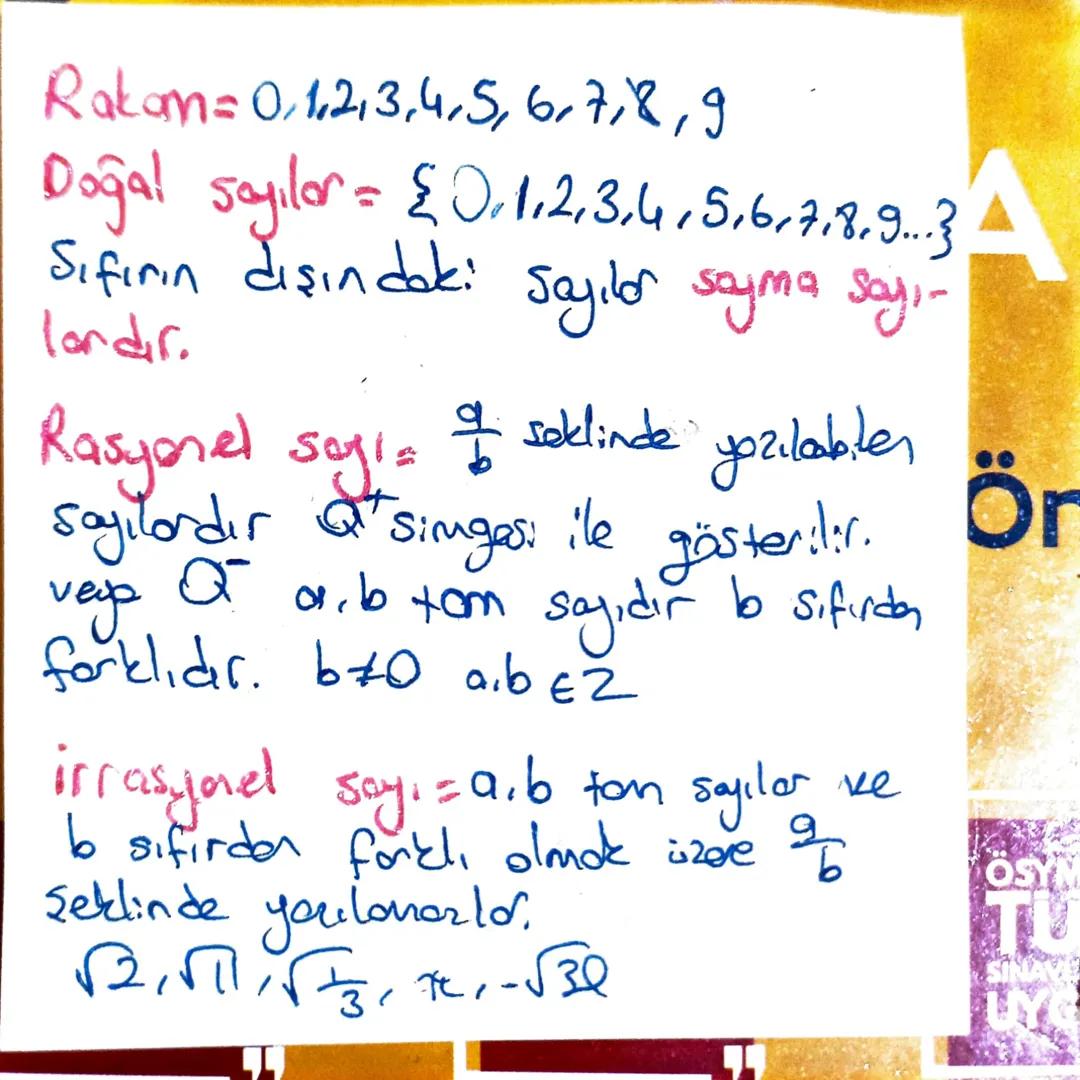 Rakam= 0,1,2,3,4,5,6,7,8,9
Doğal sayılar= {0,1,2,3,4,5,6,7,8,9...}
Sıfırın dışındaki sayılar sayma sayı-
lardır.
Rasyonel sayı= a/b şeklinde yazılabilen
sayılardır Q⁺ simgesi ile gösterilir.
veya Q⁻ a,b tam sayıdır b sıfırdan
farklıdır. b≠0 a,b ∈ Z
irrasyonel sayı= a,b tam sayılar ve
b sıfırdan farklı olmak üzere a/b
şeklinde yazılamazlar.
√2, √11, √1/3, π, -√30
A
Ör
ÖSYM
TU
SINAV
UYG